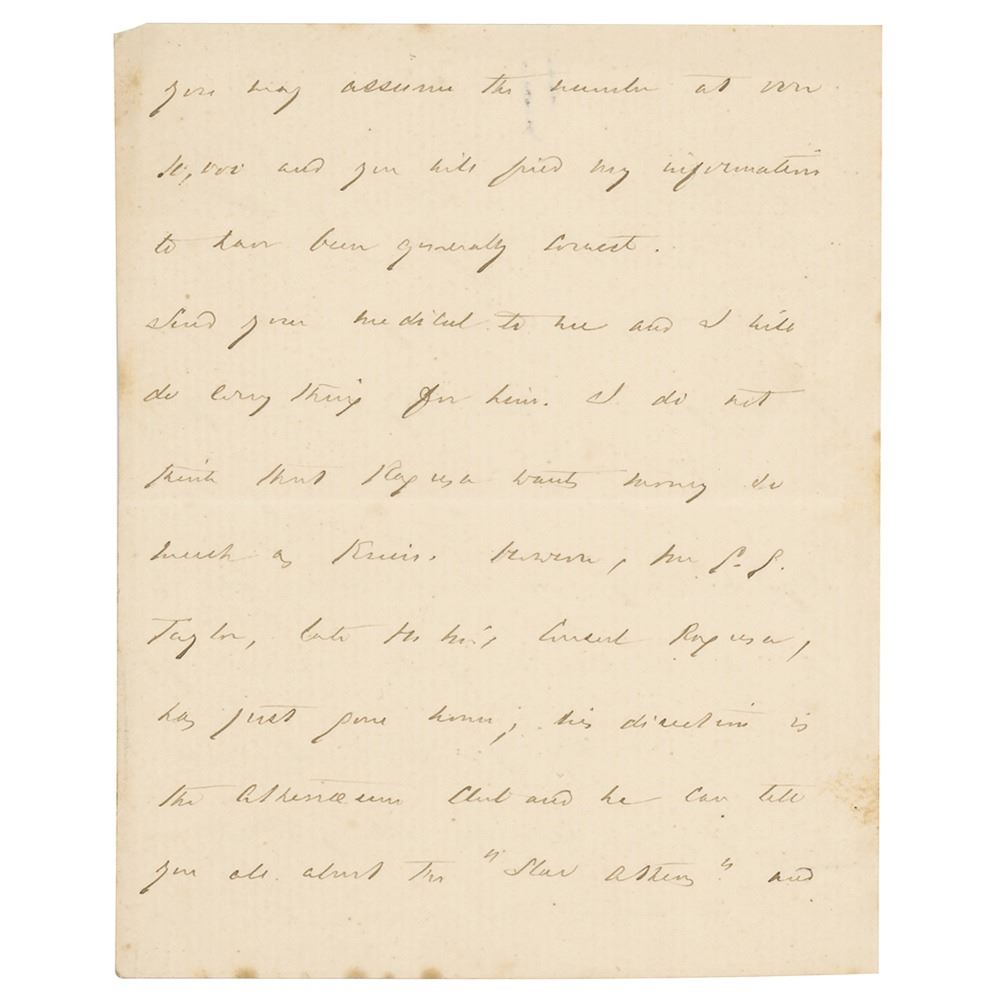 you may assume the number at over
10,000 and you will find my information
to have been generally correct.
Send your medical to me and I will
do everything for him. I do not
think that Ragusa wants money so
much as Knin. However, Mr P. P.
Taylor, late H. M.'s Consul Ragusa,
has just gone home; his direction is
the Athenæum Club and he can tell
you all about the "Slav Athens" and